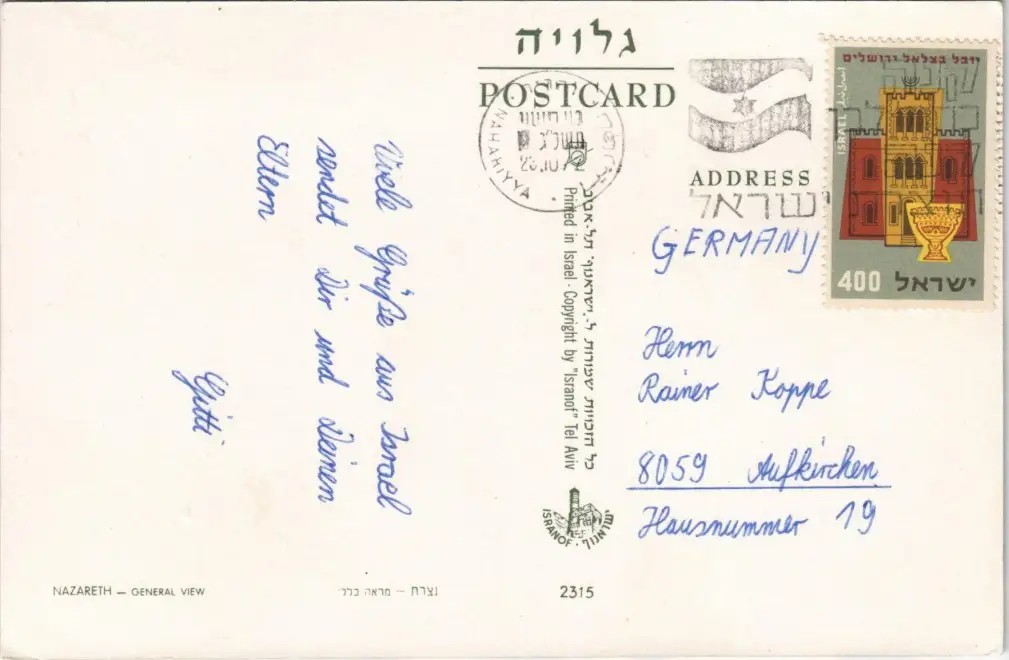 גלויה
POSTCARD
NAHARIYYA
ADDRESS
ישראל
יובל בצלאל ירושלים
ISRAEL
400 ישראל
Viele Grüße aus Israel
sendet Dir und Deinen
Eltern
Gitti
כל הזכויות שמורות ל-"ישראנוף" תל-אביב
Printed in Israel · Copyright by "Isranof" Tel Aviv
GERMANY
Herrn
Rainer Koppe
8059 Aufkirchen
Hausnummer 19
ISRANOF · ישראנוף
NAZARETH — GENERAL VIEW
נצרת — מראה כללי
2315